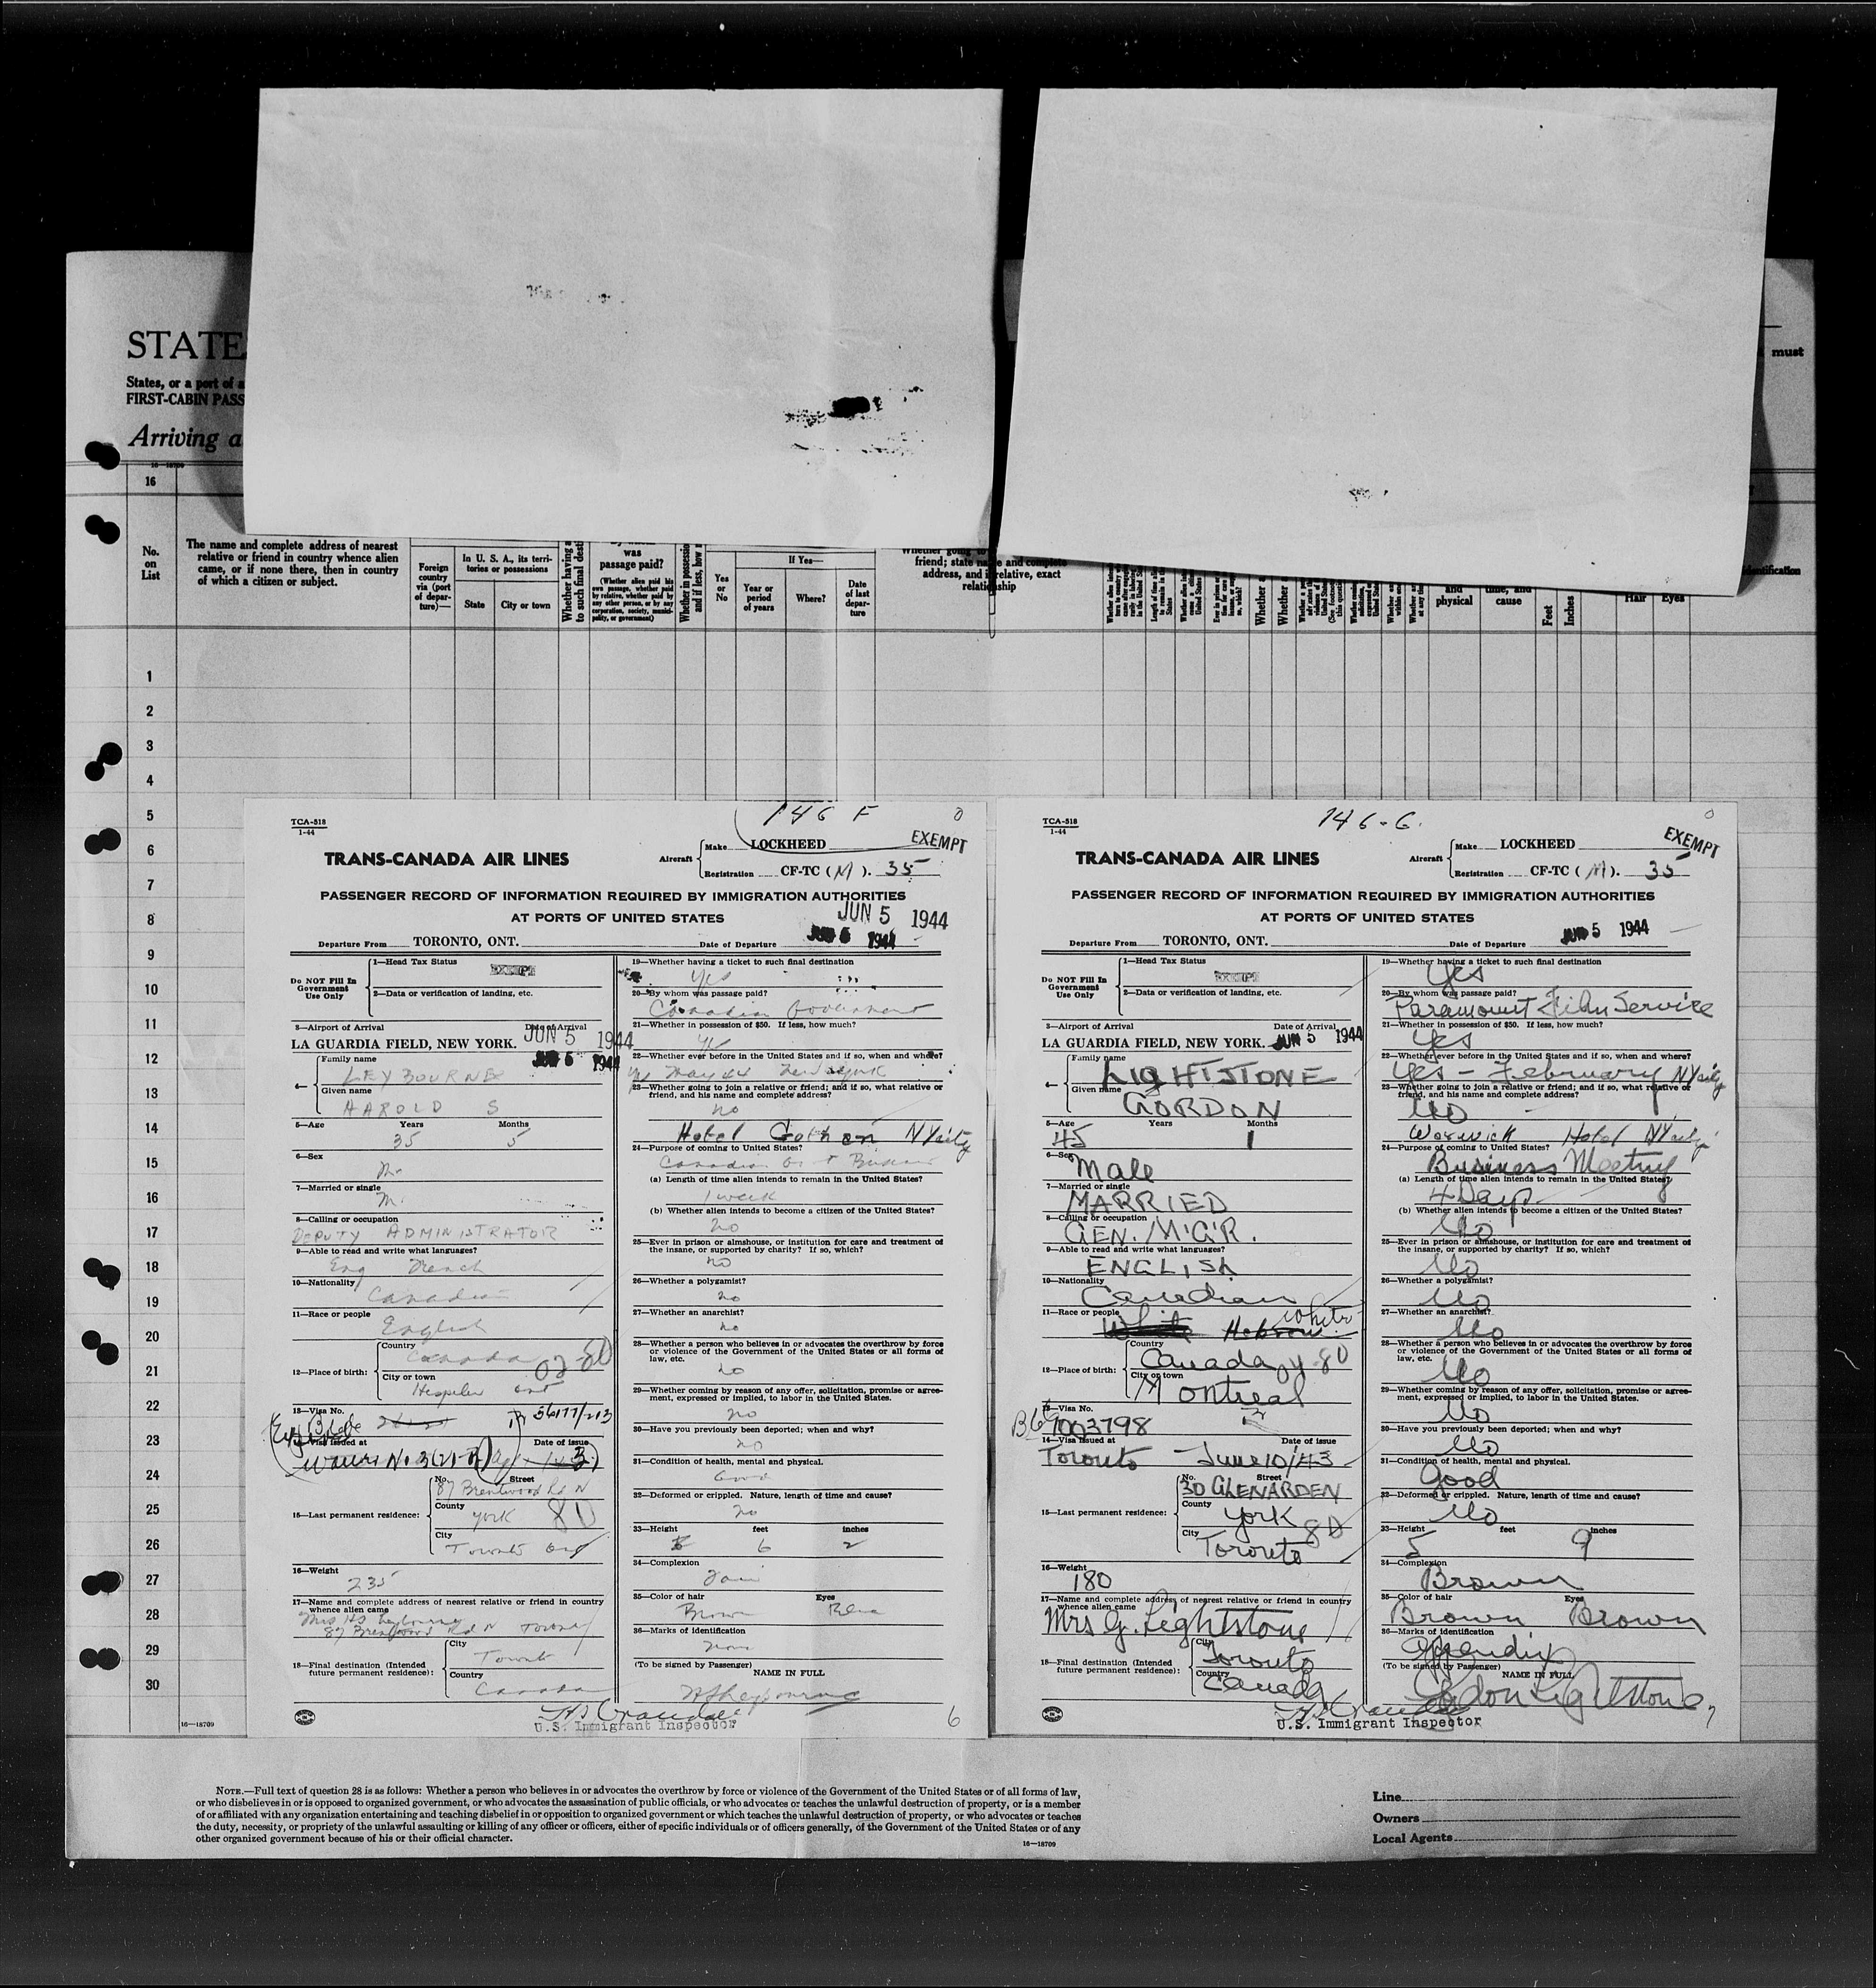 STATE
States, or a port of a
FIRST-CABIN PASS
Arriving a
must
16—18709
16
No. on List
The name and complete address of nearest
relative or friend in country whence alien
came, or if none there, then in country
of which a citizen or subject.
Foreign country via (port of departure)—
In U. S. A., its territories or possessions
State
City or town
Whether having a
to such final desti
was
passage paid?
(Whether alien paid his
own passage, whether paid
by relative, whether paid by
any other person, or by any
corporation, society, municipality, or government)
Whether in possession
and if less, how
Yes or No
If Yes—
Year or period of years
Where?
Date of last departure
Whether going to
friend; state name and complete
address, and if relative, exact
relationship
Whether
Whether
and
physical
time, and
cause
Feet
Inches
Hair
Eyes
identification
1
2
3
4
5
6
7
8
9
10
11
12
13
14
15
16
17
18
19
20
21
22
23
24
25
26
27
28
29
30
16—18709
146 F
TCA-518
1-44
TRANS-CANADA AIR LINES
Aircraft
Make LOCKHEED
EXEMPT
Registration CF-TC (M). 35
PASSENGER RECORD OF INFORMATION REQUIRED BY IMMIGRATION AUTHORITIES
AT PORTS OF UNITED STATES
JUN 5 1944
Departure From TORONTO, ONT. Date of Departure JUN 5 1944
Do NOT Fill In
Government
Use Only
1—Head Tax Status EXEMPT
2—Data or verification of landing, etc.
3—Airport of Arrival Date of Arrival
LA GUARDIA FIELD, NEW YORK. JUN 5 1944
JUN 5 1944
4—
Family name
LEYBOURNE
Given name
HAROLD S
5—Age Years Months
35 5
6—Sex
M.
7—Married or single
M.
8—Calling or occupation
DEPUTY ADMINISTRATOR
9—Able to read and write what languages?
Eng French
10—Nationality
Canadian
11—Race or people
English
12—Place of birth:
Country
Canada 02-80
City or town
Hespeler Ont
13—Visa No.
56177/213
14—Visa issued at Date of issue
15—Last permanent residence:
No. Street
87 Brentwood Rd N
County
York 80
City
Toronto Ont
16—Weight
235
17—Name and complete address of nearest relative or friend in country
whence alien came
Mrs HS Leybourne
87 Brentwood Rd N Toronto
18—Final destination (Intended
future permanent residence):
City
Toronto
Country
Canada
19—Whether having a ticket to such final destination
Yes
20—By whom was passage paid?
Canadian Government
21—Whether in possession of $50. If less, how much?
Yes
22—Whether ever before in the United States and if so, when and where?
Yes May 44 New York
23—Whether going to join a relative or friend; and if so, what relative or
friend, and his name and complete address?
no
Hotel Gotham NYcity
24—Purpose of coming to United States?
Canadian Business
(a) Length of time alien intends to remain in the United States?
1 week
(b) Whether alien intends to become a citizen of the United States?
no
25—Ever in prison or almshouse, or institution for care and treatment of
the insane, or supported by charity? If so, which?
no
26—Whether a polygamist?
no
27—Whether an anarchist?
no
28—Whether a person who believes in or advocates the overthrow by force
or violence of the Government of the United States or all forms of
law, etc.
no
29—Whether coming by reason of any offer, solicitation, promise or agreement, expressed or implied, to labor in the United States.
no
30—Have you previously been deported; when and why?
no
31—Condition of health, mental and physical.
Good
32—Deformed or crippled. Nature, length of time and cause?
no
33—Height feet inches
6 2
34—Complexion
Fair
35—Color of hair Eyes
Brown Blue
36—Marks of identification
none
(To be signed by Passenger) NAME IN FULL
HS Leybourne
U.S. Immigrant Inspector
6
146-G.
TCA-518
1-44
TRANS-CANADA AIR LINES
Aircraft
Make LOCKHEED
EXEMPT
Registration CF-TC (M). 35
PASSENGER RECORD OF INFORMATION REQUIRED BY IMMIGRATION AUTHORITIES
AT PORTS OF UNITED STATES
Departure From TORONTO, ONT. Date of Departure JUN 5 1944
Do NOT Fill In
Government
Use Only
1—Head Tax Status EXEMPT
2—Data or verification of landing, etc.
3—Airport of Arrival Date of Arrival
LA GUARDIA FIELD, NEW YORK. JUN 5 1944
4—
Family name
LIGHTSTONE
Given name
GORDON
5—Age Years Months
45 1
6—Sex
Male
7—Married or single
MARRIED
8—Calling or occupation
GEN. M'G'R.
9—Able to read and write what languages?
ENGLISH
10—Nationality
Canadian
11—Race or people
White Hebrew White
12—Place of birth:
Country
Canada 80
City or town
Montreal
13—Visa No.
14—Visa issued at Date of issue
Toronto June 10/43
15—Last permanent residence:
No. Street
30 GLENARDEN
County
York 80
City
Toronto
16—Weight
180
17—Name and complete address of nearest relative or friend in country
whence alien came
Mrs G. Lightstone
18—Final destination (Intended
future permanent residence):
City
Toronto
Country
Canada
19—Whether having a ticket to such final destination
Yes
20—By whom was passage paid?
Paramount Film Service
21—Whether in possession of $50. If less, how much?
Yes
22—Whether ever before in the United States and if so, when and where?
Yes – February NYcity
23—Whether going to join a relative or friend; and if so, what relative or
friend, and his name and complete address?
No
Warwick Hotel NYcity
24—Purpose of coming to United States?
Business Meeting
(a) Length of time alien intends to remain in the United States?
4 Days
(b) Whether alien intends to become a citizen of the United States?
No
25—Ever in prison or almshouse, or institution for care and treatment of
the insane, or supported by charity? If so, which?
No
26—Whether a polygamist?
No
27—Whether an anarchist?
No
28—Whether a person who believes in or advocates the overthrow by force
or violence of the Government of the United States or all forms of
law, etc.
No
29—Whether coming by reason of any offer, solicitation, promise or agreement, expressed or implied, to labor in the United States.
No
30—Have you previously been deported; when and why?
No
31—Condition of health, mental and physical.
Good
32—Deformed or crippled. Nature, length of time and cause?
No
33—Height feet inches
5 9
34—Complexion
Brown
35—Color of hair Eyes
Brown Brown
36—Marks of identification
Appendix
(To be signed by Passenger) NAME IN FULL
Gordon Lightstone
U.S. Immigrant Inspector
7
NOTE.—Full text of question 28 is as follows: Whether a person who believes in or advocates the overthrow by force or violence of the Government of the United States or of all forms of law,
or who disbelieves in or is opposed to organized government, or who advocates the assassination of public officials, or who advocates or teaches the unlawful destruction of property, or is a member
of or affiliated with any organization entertaining and teaching disbelief in or opposition to organized government or which teaches the unlawful destruction of property, or who advocates or teaches
the duty, necessity, or propriety of the unlawful assaulting or killing of any officer or officers, either of specific individuals or of officers generally, of the Government of the United States or of any
other organized government because of his or their official character.
16—18709
Line
Owners
Local Agents